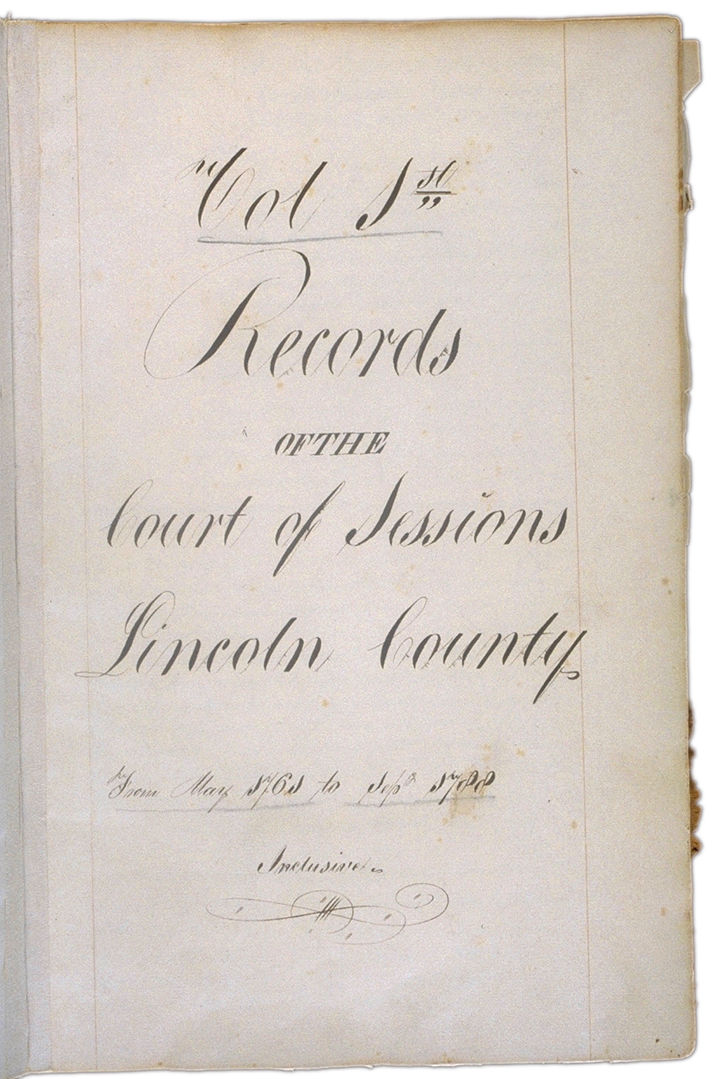 Vol 1st
Records
OF THE
Court of Sessions
Lincoln County
From May 1761 to Sepr 1788
Inclusive.